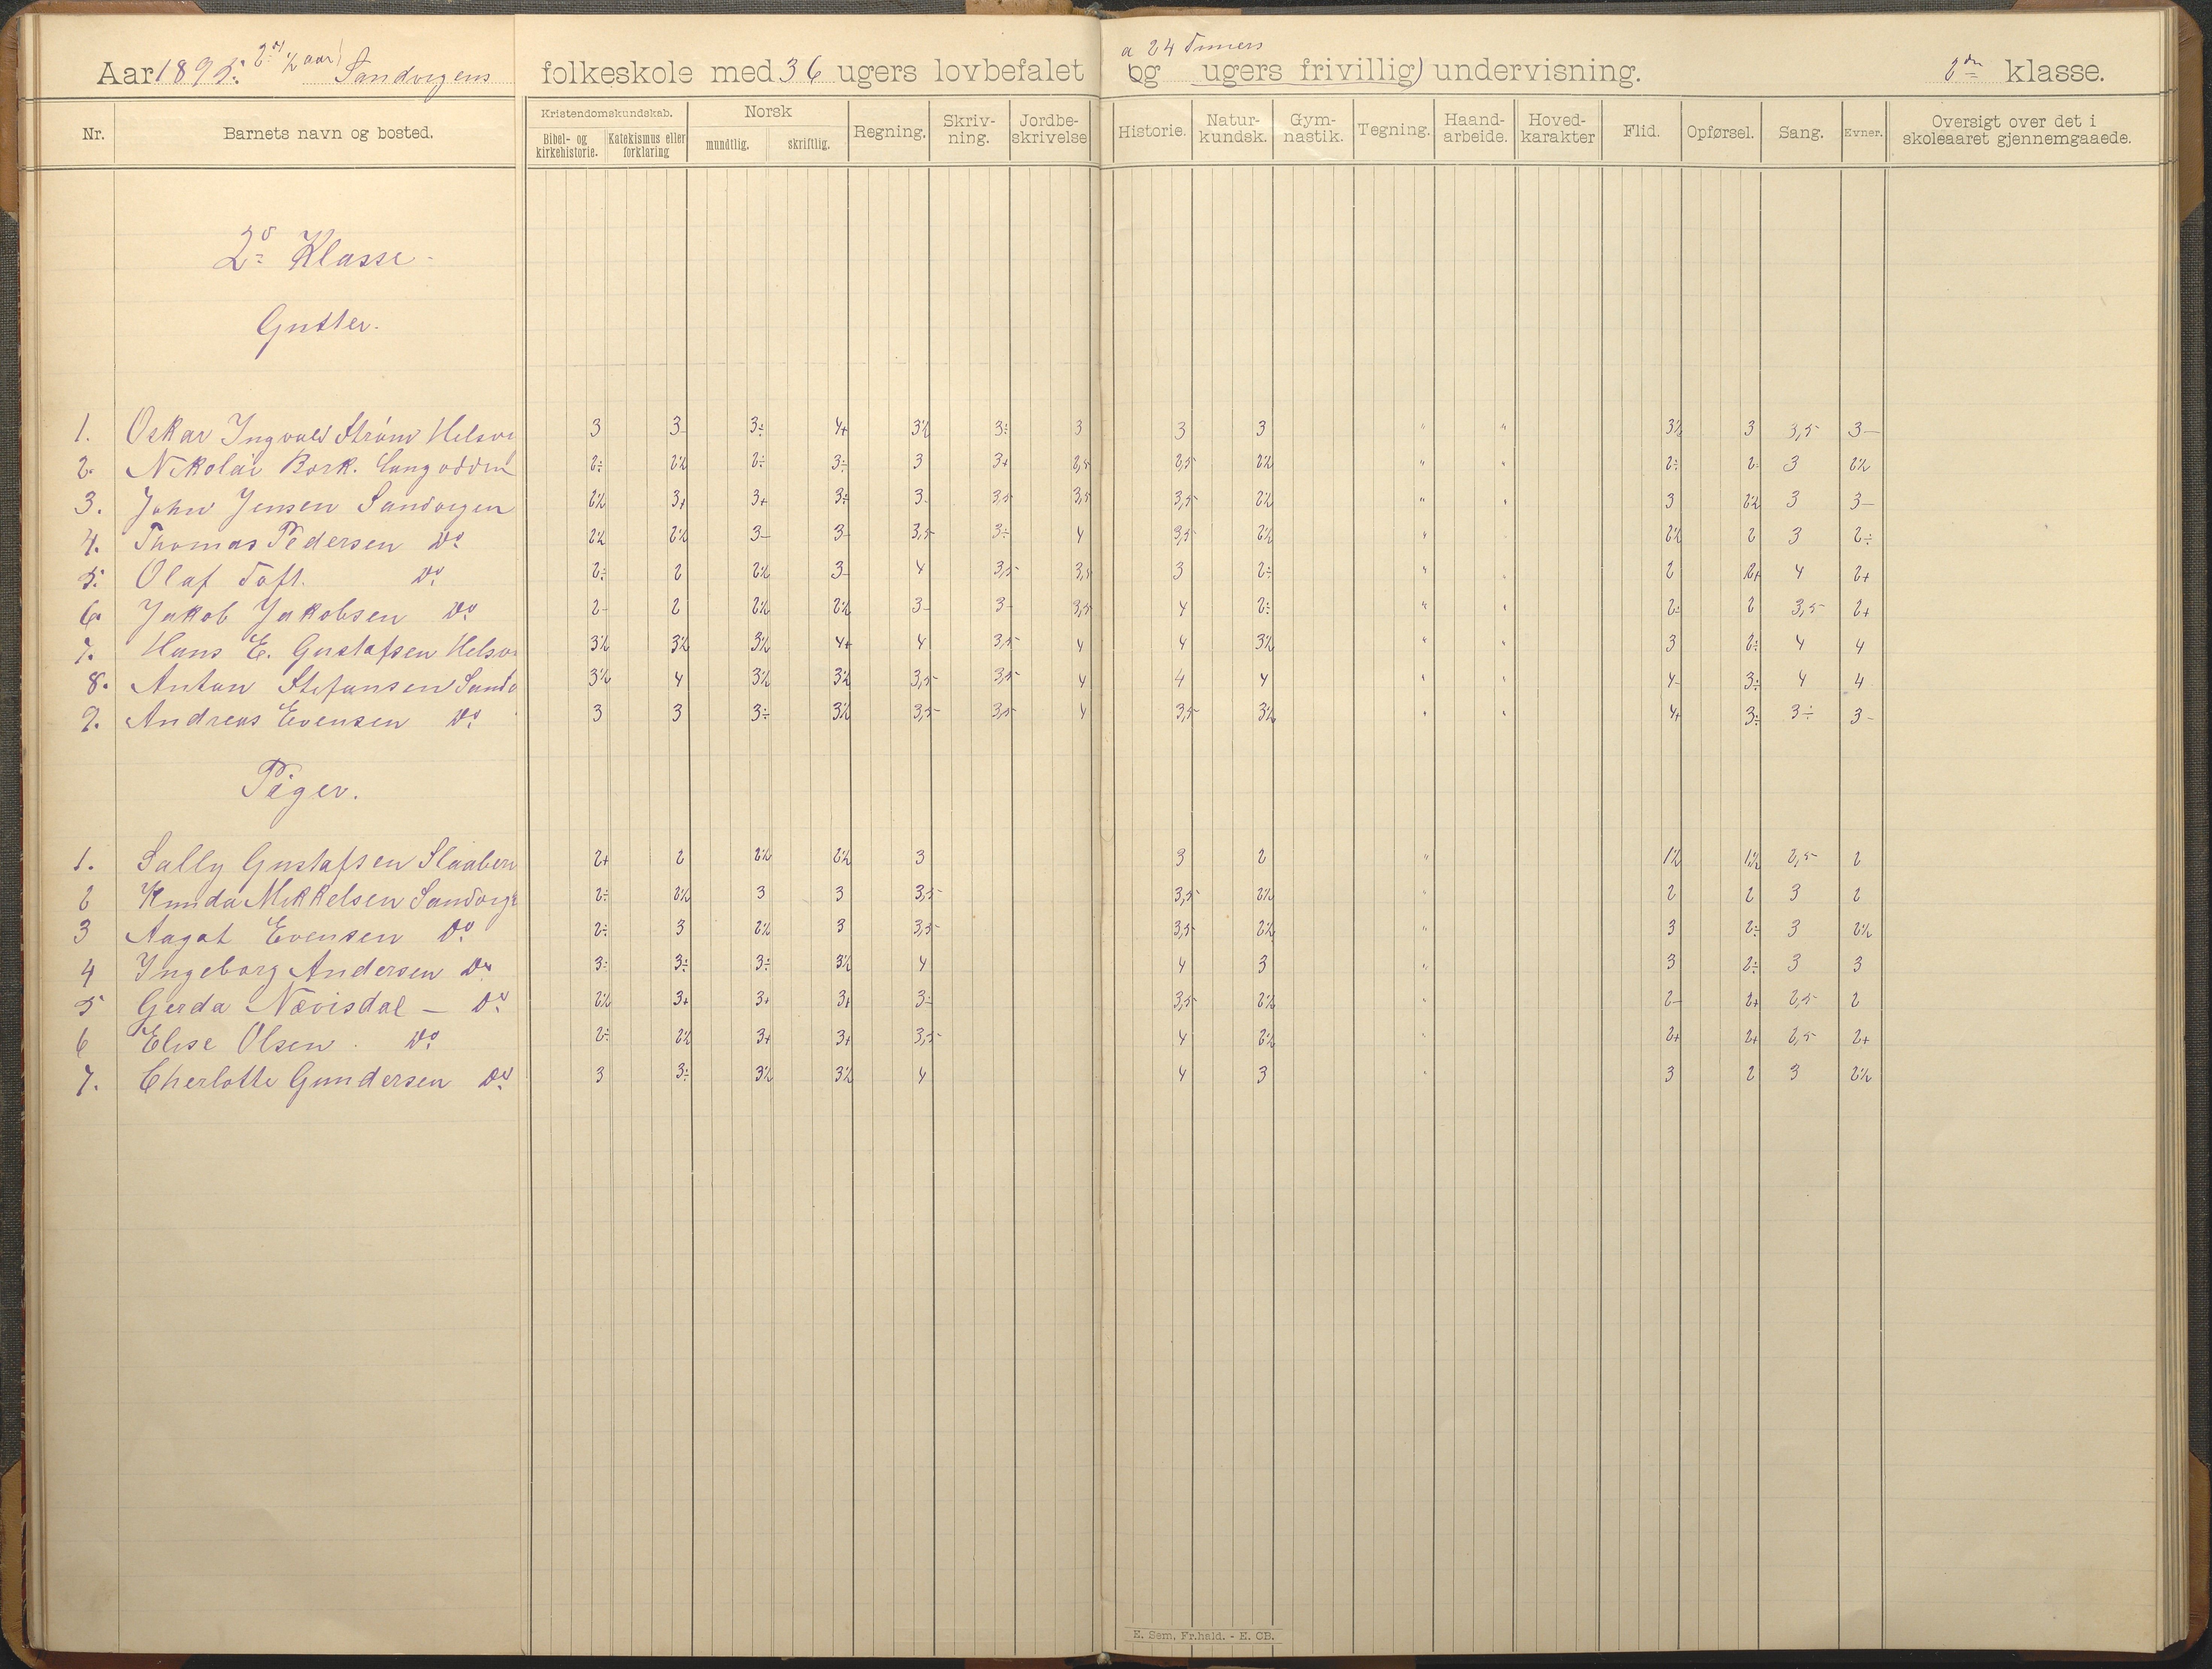 Aar 1895. 2det ½ aar) Sandvigens folkeskole med 36 ugers lovbefalet a 24 Timers og ugers frivillig) undervisning. 2den klasse.
Nr. Barnets navn og bosted. Kristendomskundskab. Bibel- og kirkehistorie. Katekismus eller forklaring Norsk mundtlig. skriftlig. Regning. Skrivning. Jordbeskrivelse Historie. Naturkundsk. Gymnastik. Tegning. Haandarbeide. Hovedkarakter Flid. Opførsel. Sang. Evner. Oversigt over det i skoleaaret gjennemgaaede.
2den Klasse
Gutter.
1. Oskar Ingvald Strøm Helsvi 3 3- 3÷ 4+ 3½ 3÷ 3 3 3 " " 3½ 3 3,5 3-
2. Nikolai Bork. Langodden 2÷ 2½ 2÷ 3÷ 3 3+ 2,5 2,5 2½ " " 2÷ 2- 3 2½
3. John Jensen Sandvigen 2½ 3+ 3+ 3÷ 3- 3,5 3,5 3,5 2½ " " 3 2½ 3 3-
4. Thomas Pedersen Do 2½ 2½ 3- 3- 3,5 3÷ 4 3,5 2½ " 2½ 2 3 2÷
5. Olaf Toft. Do 2÷ 2 2½ 3- 4 3,5 3,5 3 2÷ " " 2 2+ 4 2+
6. Jakob Jakobsen Do 2- 2 2½ 2½ 3- 3- 3,5 4 2÷ " " 2÷ 2 3,5 2+
7. Hans E. Gustafsen Helsvi 3½ 3½ 3½ 4+ 4 3,5 4 4 3½ " " 3 2÷ 4 4
8. Anton Stefansen Sandv 3½ 4 3½ 3½ 3,5 3,5 4 4 4 " " 4- 3÷ 4 4
9. Andreas Evensen Do 3 3 3÷ 3½ 3,5 3,5 4 3,5 3½ " " 4+ 3÷ 3÷ 3-
Piger.
1. Sally Gustafsen Slaaben 2+ 2 2½ 2½ 3 3 2 " 1½ 1½ 2,5 2
2 Kunda Mikkelsen Sandvige 2÷ 2½ 3 3 3,5 3,5 2½ " 2 2 3 2
3 Aagot Evensen Do 2÷ 3 2½ 3 3,5 3,5 2½ " 3 2÷ 3 2½
4 Ingeborg Andersen Do 3÷ 3÷ 3÷ 3½ 4 4 3 " 3 2÷ 3 3
5 Gerda Nævisdal - Do 2½ 3+ 3+ 3+ 3÷ 3,5 2½ " 2- 2+ 2,5 2
6 Elise Olsen. Do 2÷ 2½ 3+ 3+ 3,5 4 2½ " 2+ 2+ 2,5 2+
7. Cherlotte Gundersen Do 3 3÷ 3½ 3½ 4 4 3 " 3 2 3 2½
E. Sem, Fr.hald. - E. CB.